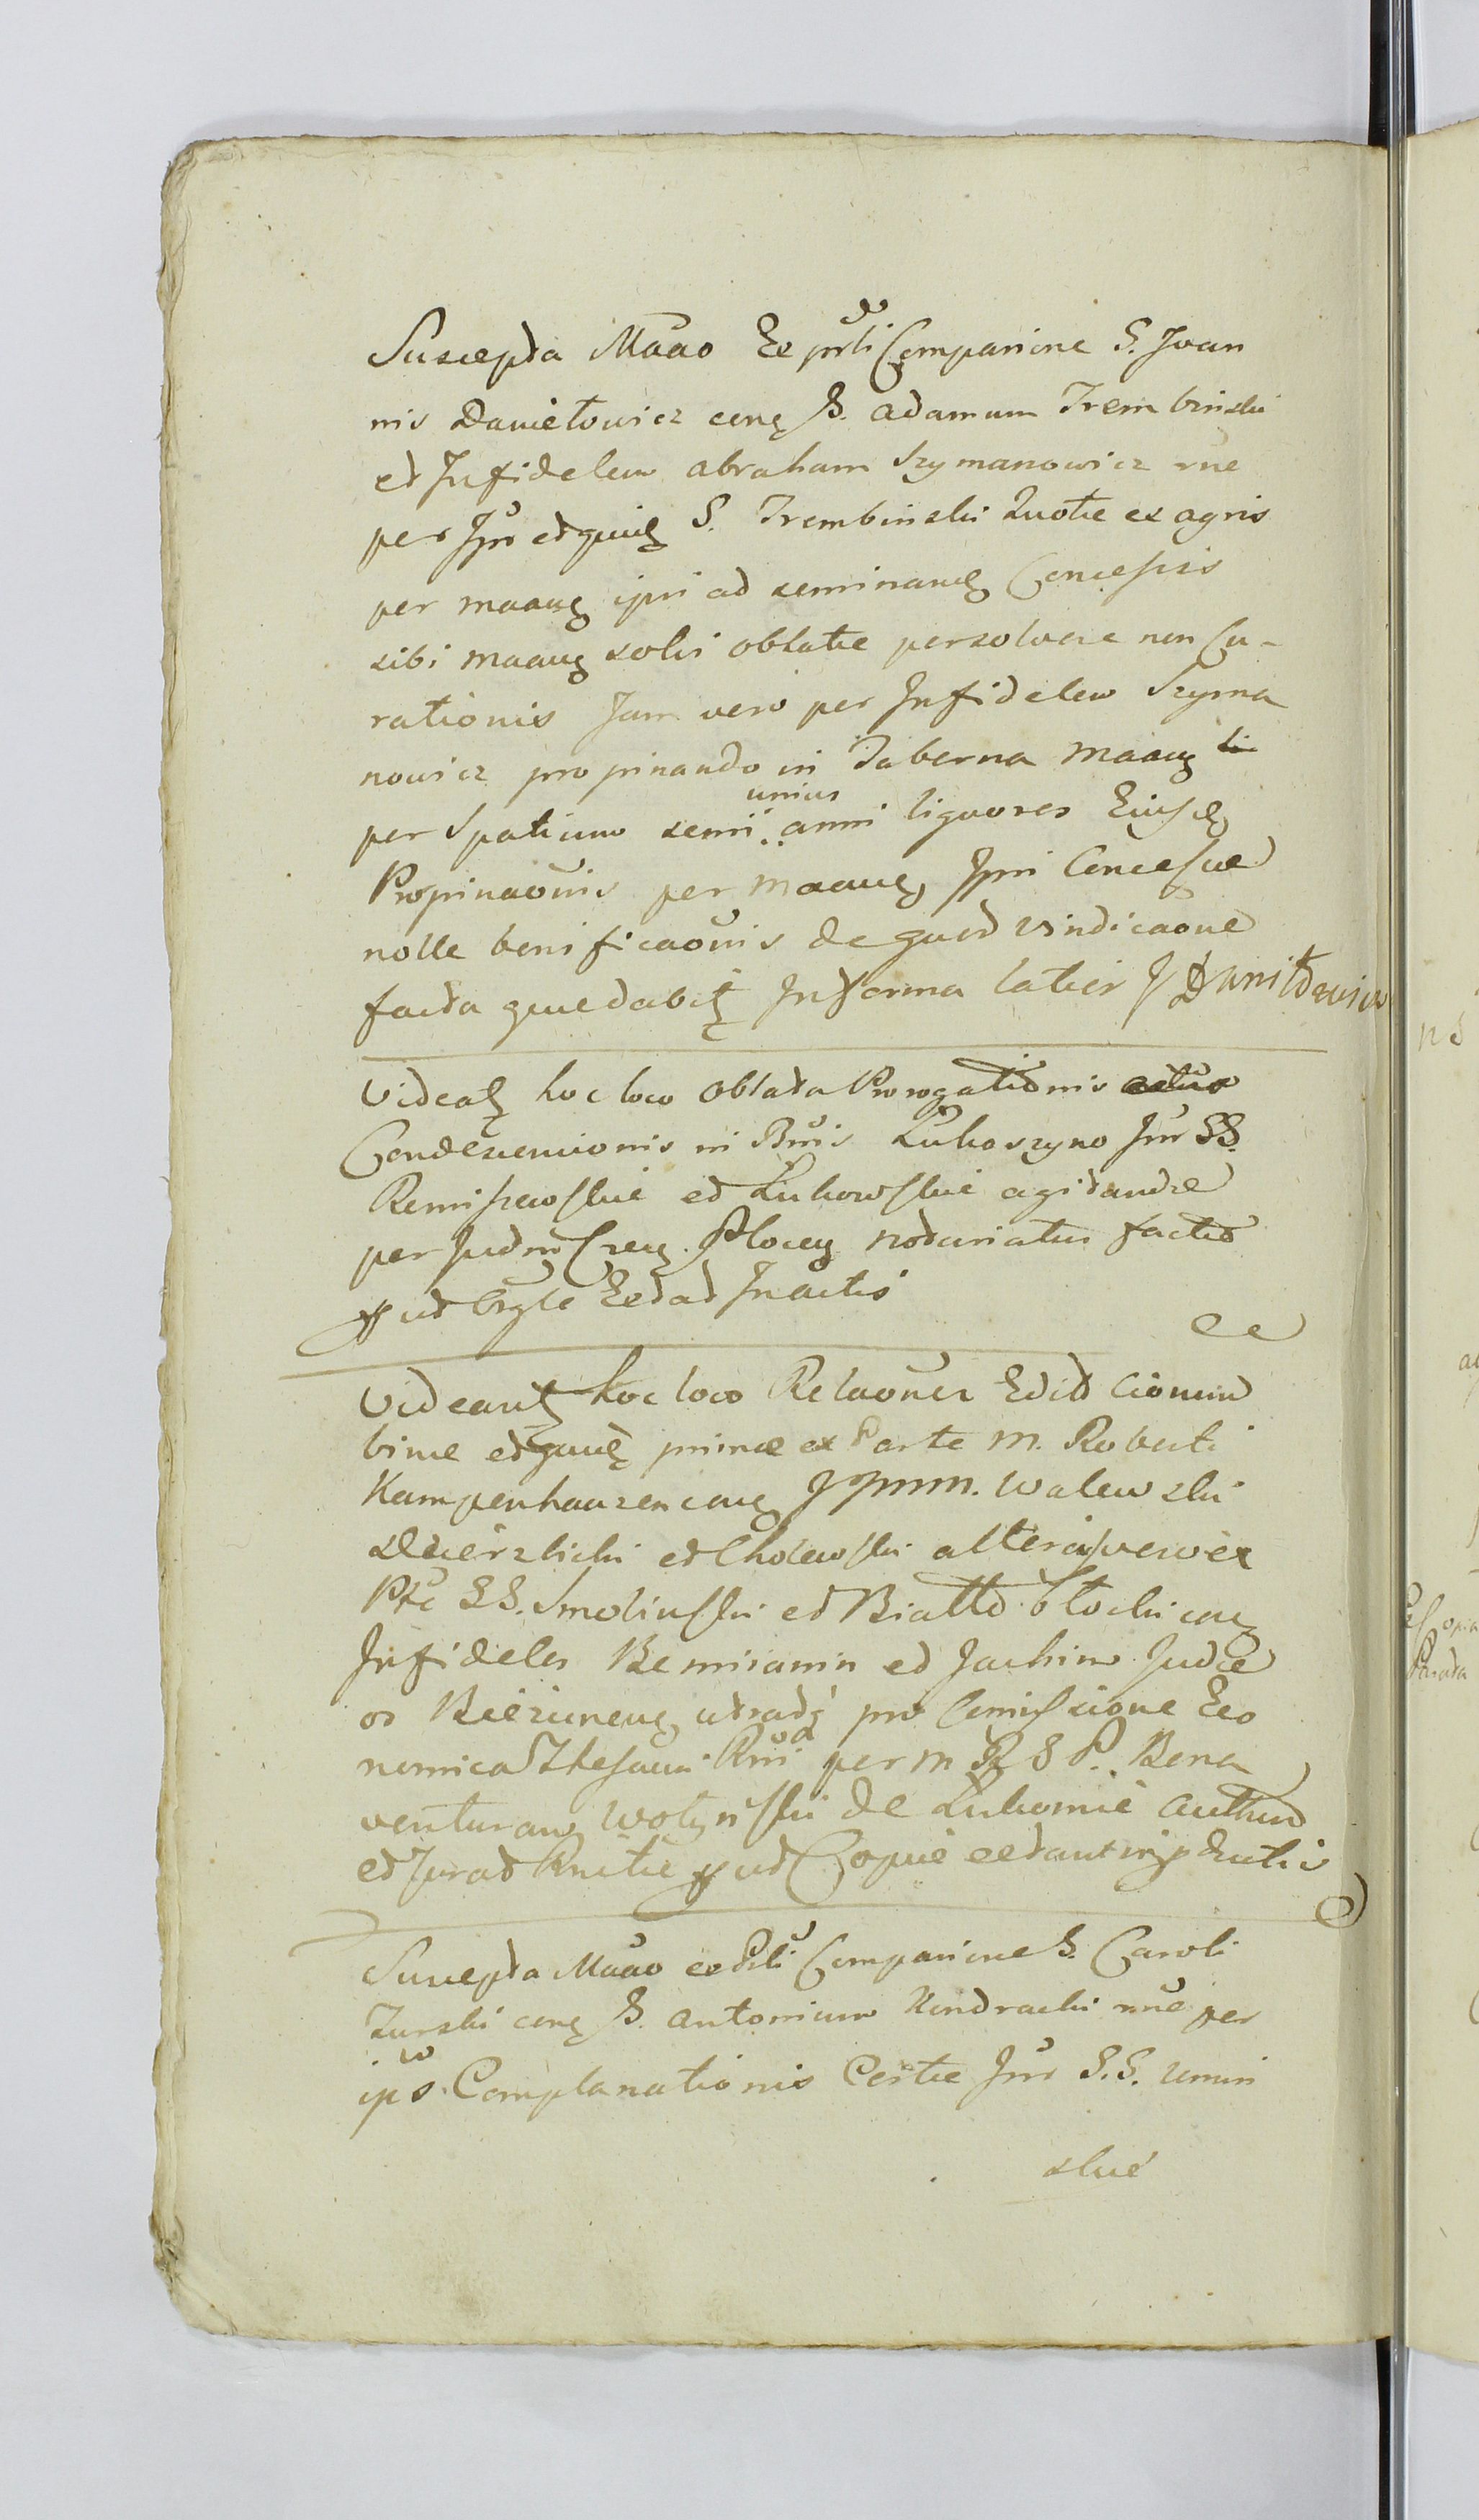 Suscepta Maão Ex prli Comparicine S. Joan
nis Daniełowicz conq S. adamum Trembinski
et Infidelem abraham Szymanowicz rñe
per Ipõ et quid S. Trembinski Quotæ ex agris
per maanq ipsi ad seminandq Concessis
sibi maanq solvi oblatæ persolvere non Cu-
rationis Jam vero per Infidelem Szyma
nowicz propinando in Taberna maanq
per Spatium semi unius anni liquores Eiusd
Propinaõnis per maanq Ipsi Concessæ
nolle bonificaõnis de quod vindicaõne
facta quæ dabitq In forma latiori J Daniłowicz
Videatq hoc loco Oblata Prorogationis actus
Condescensionis in Bnis Łukoszyno Inr SS.
Remiszewskie et Łukowskie agitandæ
per Judm Creq. Plocq notariatus factæ
ut Orgle Exdat Inactis
Videantq hoc loco Relaõnes Edit Cionum
binæ et quid primæ ex Parte M. Roberti
Kampenhauzen conq JPMM. Walewski
Dzierzbicki et Cholewski alteræ vero ex
Pte SS. Smolinski et Białobłocki conq
Infideles Beniiamin et Jachim Judæ
os Biezunenq utradq pro Comissione Eco
nomica Thesauri Rni per M R S P. Bona
venturam Wołynski de Łukomie authen
et Jurat Rnitæ ut Copiæ exdant inp Actis
Suscepta Maão ex Prli Comparicine S. Caroli
Turski conq S. Antonium Kendracki rñe per
ips Complanationis Certæ Inr S.S. Umin
skie